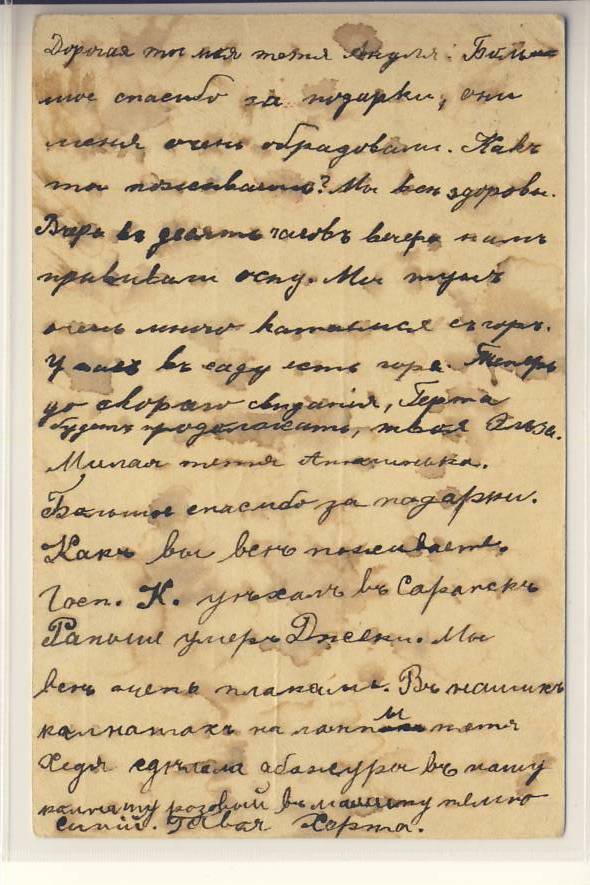 Дорогая ты моя тетя Януля. Боль-
шое спасибо за подарки, они
меня очень обрадовали. Какъ
ты поживаешь? Мы всѣ здоровы.
Вчера въ десять часовъ вечера намъ
прививали оспу. Мы тутъ
очень много катаемся съ горъ.
У насъ въ саду есть гора. Теперь
до скораго свиданія, Герта
будетъ продолжать, твоя Эльза.
Милая тетя
Большое спасибо за подарки.
Какъ вы всѣ поживаете.
Госп. К. уѣхалъ въ Сарапскъ
умеръ Дженни. Мы
всѣ очень плакали. Въ нашихъ
комнатахъ на лампы тетя
Хедя сдѣлала абажуры въ нашу
комнату розовый въ мамину темно
синій. Твоя Херта.